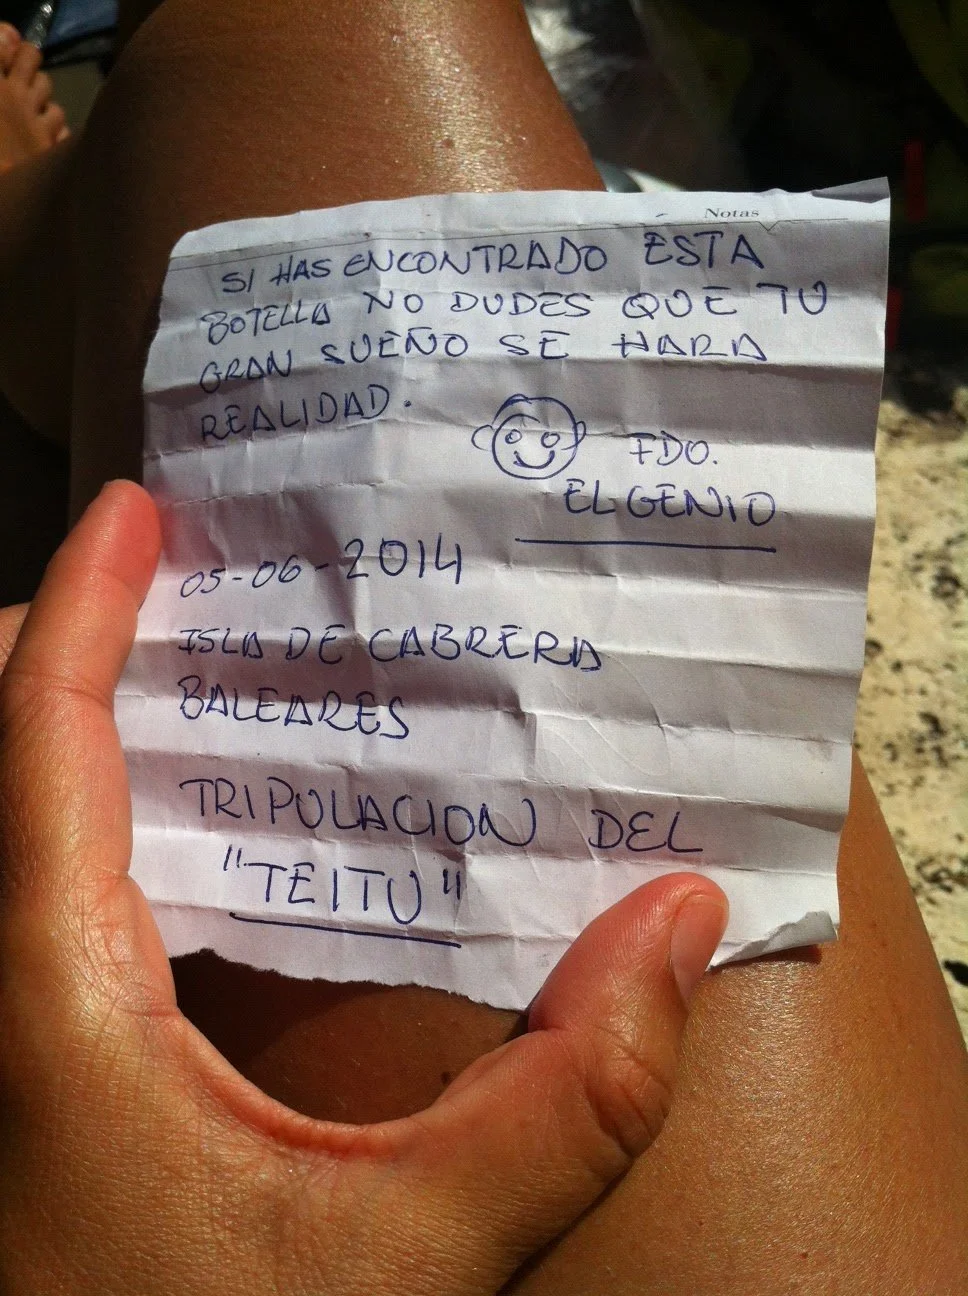 Notas
SI HAS ENCONTRADO ESTA
BOTELLA NO DUDES QUE TU
GRAN SUEÑO SE HARA
REALIDAD.
FDO.
EL GENIO
05-06-2014
ISLA DE CABRERA
BALEARES
TRIPULACION DEL
"TEITU"